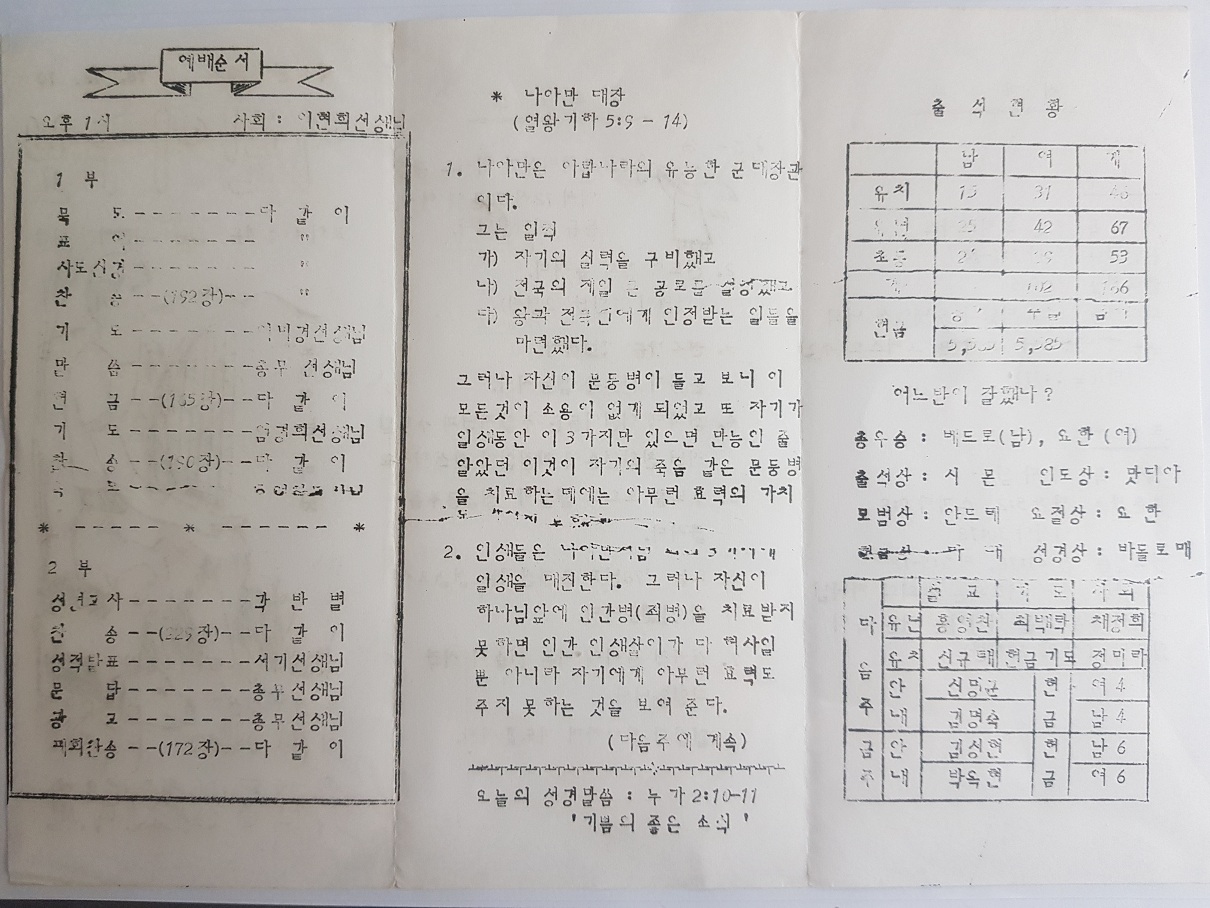 예배순서
오후 1시 사회 : 이현희선생님
1 부
묵 도 - - - - - - - 다 같 이
표 어 - - - - - - - "
사도신경 - - - - - - - "
찬 송 - -(192장)- - "
기 도 - - - - - - - 선생님
말 씀 - - - - - - - 총무 선생님
헌 금 - -(185장)- - 다 같 이
기 도 - - - - - - - 엄경희선생님
찬 송 - -(190장)- - 다 같 이
* - - - - - * - - - - - - *
2 부
성년교사 - - - - - - - 각 반 별
찬 송 - -(229장)- - 다 같 이
성적발표 - - - - - - - 서기선생님
문 답 - - - - - - - 총무선생님
광 고 - - - - - - - 총무선생님
폐회찬송 - -(172장)- - 다 같 이
* 나아만 대장
(열왕기하 5:9 - 14)
1. 나아만은 아람나라의 유능한 군대장관
이다.
그는 일찍
가) 자기의 실력을 구비했고
나) 전국의 제일 큰 공로를 설명했고
다) 왕과 전국민에게 인정받는 일들을
마련했다.
그러나 자신이 문둥병이 들고 보니 이
모든것이 소용이 없게 되었고 또 자기가
일생동안 이 3가지만 있으면 만능인 줄
알았던 이것이 자기의 죽음 같은 문둥병
을 치료하는데에는 아무런 효력의 가치
2. 인생들은 나아만처럼
일생을 매진한다. 그러나 자신이
하나님앞에 인간병(죄병)을 치료받지
못하면 인간 인생살이가 다 헛사일
뿐 아니라 자기에게 아무런 효력도
주지 못하는 것을 보여 준다.
(다음주에 계속)
오늘의 성경말씀 : 누가 2:10-11
'기쁨의 좋은 소식'
출 석 현 황
남 여 계
유치 15 31 46
유년 25 42 67
초등 53
계 102
헌금
5,585
어느반이 잘했나?
총우승 : 베드로(남), 요한 (여)
출석상 : 시 몬 인도상 : 맛디아
모범상 : 안드레 요절상 : 요 한
헌금상 : 성경상 : 바돌로매
설 교 기 도 사 회
다 유년 홍영찬 최백락 채정희
음 유치 신규택 헌금기도 정미라
주 안 신명균 헌 여 4
내 김명숙 금 남 4
금 안 김성현 헌 남 6
주 내 박옥현 금 여 6